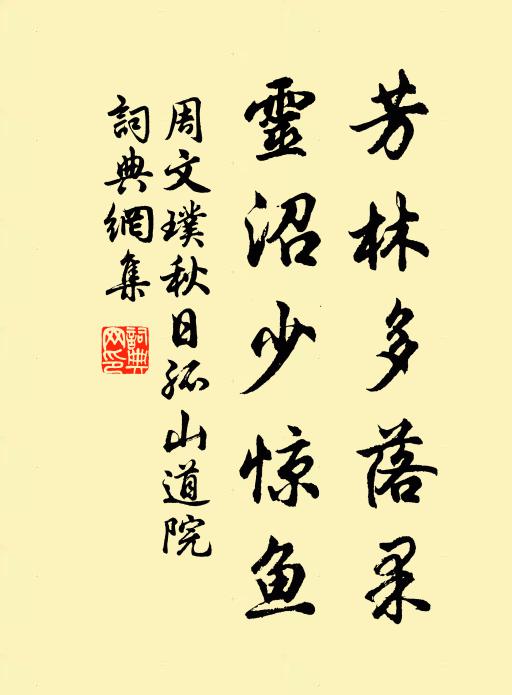 芳林多落果
靈沼少惊鱼
周文璞秋日孤山道院
詞典網集
詞典
网印